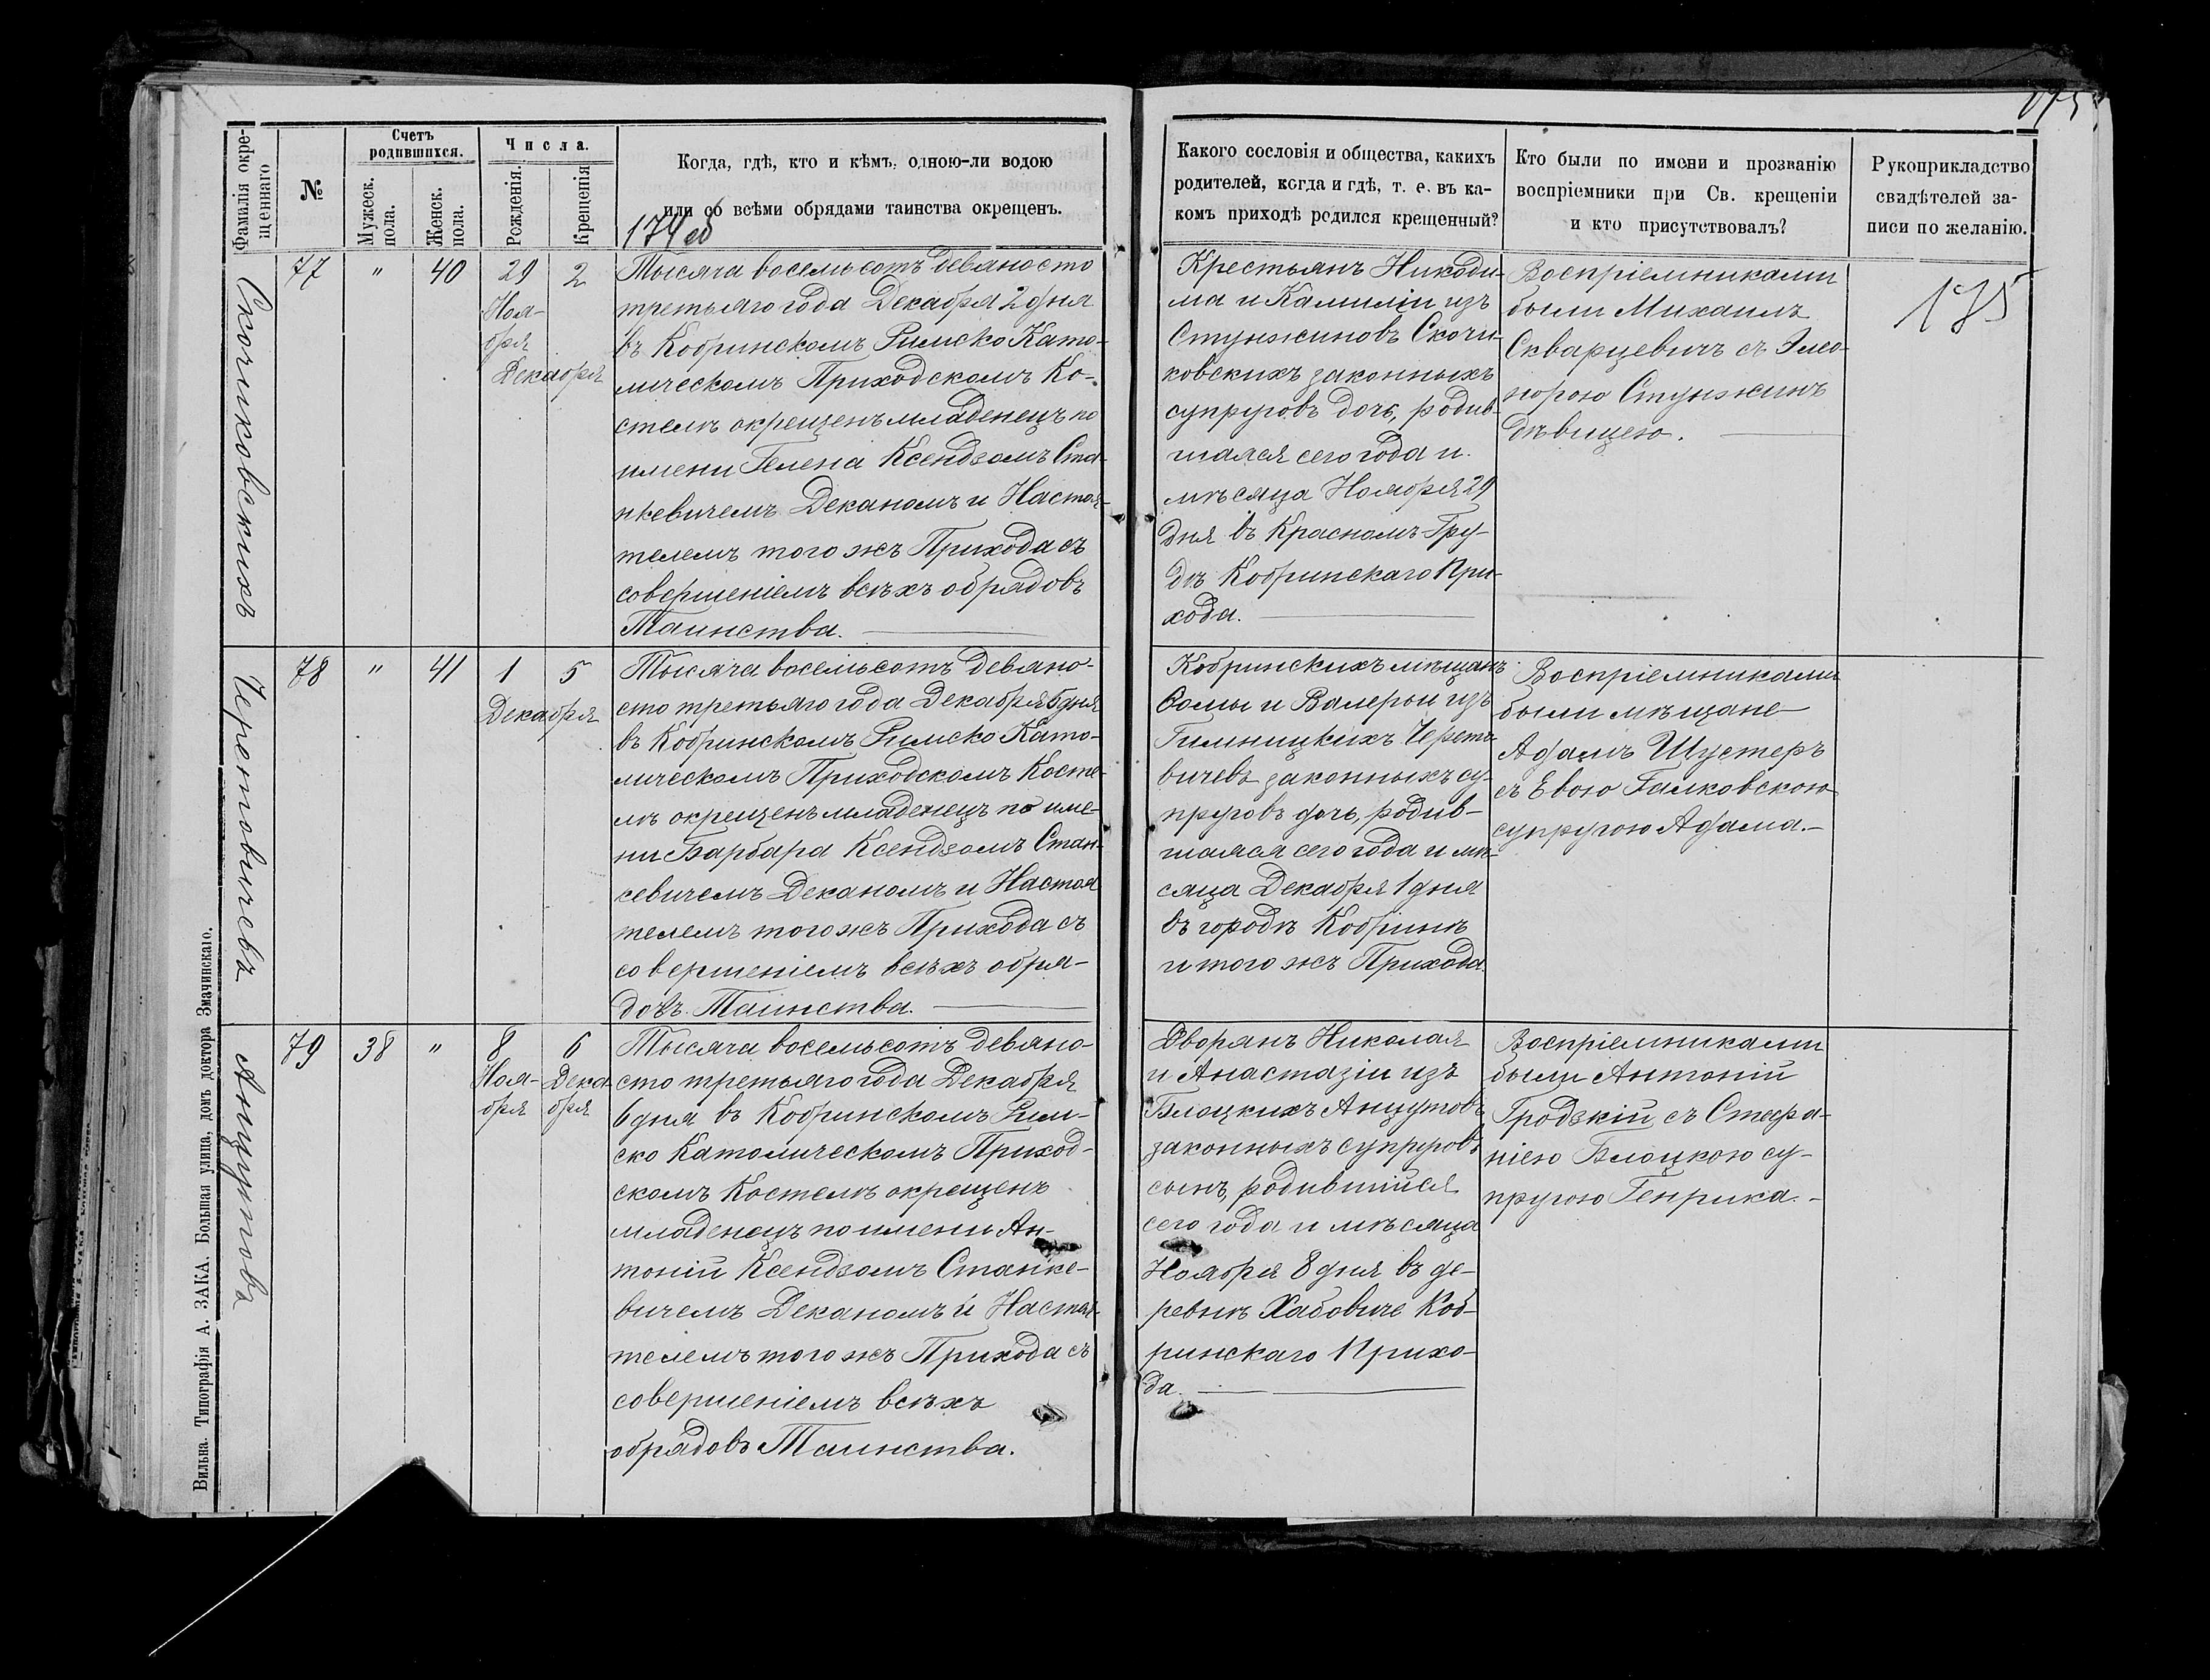 175
Фамилія окре-
щеннаго
№
Счетъ
родившихся.
Мужеск.
пола.
Женск.
пола.
Числа.
Рожденія.
Крещенія
Когда, гдѣ, кто и кѣмъ, одною-ли водою
или со всѣми обрядами таинства окрещенъ.
174 об
Какого сословія и общества, какихъ
родителей, когда и гдѣ, т. е. въ ка-
комъ приходѣ родился крещенный?
Кто были по имени и прозванію
воспріемники при Св. крещеніи
и кто присутствовалъ?
Рукоприкладство
свидѣтелей за-
писи по желанію.
Скочиковскихъ
77
"
40
29
Ноя-
бря
2
Декабря
Тысяча восемьсотъ девяносто
третьяго года Декабря 2 дня
въ Кобринскомъ Римско Като-
лическомъ Приходскомъ Ко-
стелѣ окрещенъ младенецъ по
имени Гелена Ксендзомъ Ста-
нкевичемъ Деканомъ и Настоя-
телемъ того жъ Прихода съ
совершеніемъ всѣхъ обрядовъ
Таинства.
Крестьянъ Никоди-
ма и Камиліи изъ
Стунжиновъ Скочи-
ковскихъ законныхъ
супруговъ дочь, родив-
шаяся сего года и
мѣсяца Ноября 29
дня въ Красномъ Гру-
дѣ Кобринскаго При-
хода.
Воспріемниками
были Михаилъ
Скварцевичъ съ Элео-
норою Стунжинъ
дѣвицею.
175
Черетовичевъ
78
"
41
1
5
Декабря
Тысяча восемьсотъ девяно-
сто третьяго года Декабря 5 дня
въ Кобринскомъ Римско Като-
лическомъ Приходскомъ Косте-
лѣ окрещенъ младенецъ по име-
ни Барбара Ксендзомъ Стан-
кевичемъ Деканомъ и Настоя
телемъ того жъ Прихода съ
совершеніемъ всѣхъ обря-
довъ Таинства.
Кобринскихъ мѣщанъ
Ѳомы и Валеріи изъ
Гильницкихъ Черето-
вичевъ законныхъ су-
пруговъ дочь, родив-
шаяся сего года и мѣ-
сяца Декабря 1 дня
въ городѣ Кобринѣ
и того жъ Прихода
Воспріемниками
были мѣщане
Адамъ Шустеръ
съ Евою Галковскою
супругою Адама.
Анцутовъ
79
38
"
8
Ноя-
бря
6
Дека
бря
Тысяча восемьсотъ девяно-
сто третьяго года Декабря
6 дня въ Кобринскомъ Рим-
ско Католическомъ Приход-
скомъ Костелѣ окрещенъ
младенецъ по имени Ан-
тоній Ксендзомъ Станке-
вичемъ Деканомъ и Настоя-
телемъ того жъ Прихода съ
совершеніемъ всѣхъ
обрядовъ Таинства.
Дворянъ Николая
и Анастазіи изъ
Блоцкихъ Анцутовъ
законныхъ супруговъ
сынъ, родившійся
сего года и мѣсяца
Ноября 8 дня въ де-
ревнѣ Хабовиче Коб-
ринскаго Прихо-
да.
Воспріемниками
были Антоній
Гродзкій съ Стефа-
ніею Блоцкою су-
пругою Генрика.
Вильна. Типографія А. ЗАКА. Большая улица, домъ доктора Змачинскаго.